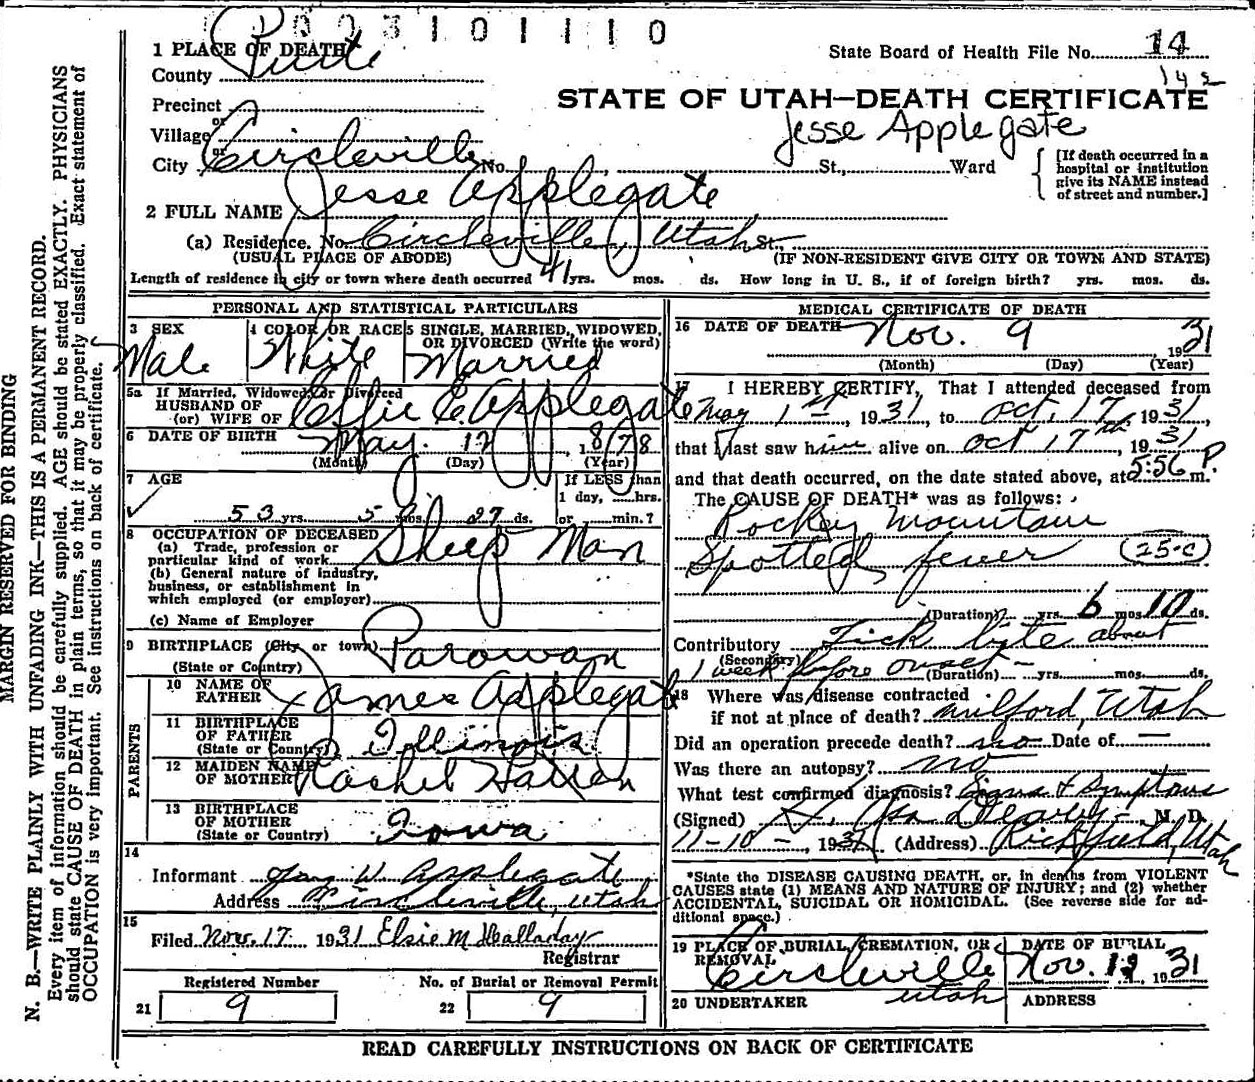 003101110
1 PLACE OF DEATH
State Board of Health File No. 14
County Piute
142
STATE OF UTAH—DEATH CERTIFICATE
Precinct
or
Jesse Applegate
Village
or
City Circleville No. St., Ward
[If death occurred in a
hospital or institution
give its NAME instead
of street and number.]
2 FULL NAME Jesse Applegate
(a) Residence. No. Circleville, Utah St.,
(USUAL PLACE OF ABODE) (IF NON-RESIDENT GIVE CITY OR TOWN AND STATE)
Length of residence in city or town where death occurred 41 yrs. mos. ds. How long in U. S., if of foreign birth? yrs. mos. ds.
PERSONAL AND STATISTICAL PARTICULARS
3 SEX
Male
4 COLOR OR RACE
White
5 SINGLE, MARRIED, WIDOWED,
OR DIVORCED (Write the word)
Married
5a If Married, Widowed, or Divorced
HUSBAND OF
(or) WIFE OF Effie E. Applegate
6 DATE OF BIRTH May 12, 1878
(Month) (Day) (Year)
7 AGE
If LESS than
1 day, hrs.
53 yrs. 5 mos. 27 ds. or min.?
8 OCCUPATION OF DECEASED
(a) Trade, profession or
particular kind of work Sheep Man
(b) General nature of industry,
business, or establishment in
which employed (or employer)
(c) Name of Employer
9 BIRTHPLACE (City or town) Parowan
(State or Country)
PARENTS
10 NAME OF
FATHER James Applegate
11 BIRTHPLACE
OF FATHER
(State or Country) Illinois
12 MAIDEN NAME
OF MOTHER Rachel
13 BIRTHPLACE
OF MOTHER
(State or Country) Iowa
14
Informant W. Applegate
Address Circleville, Utah
15
Filed Nov. 17 1931 Elsie M Halladay
Registrar
Registered Number
21 9
No. of Burial or Removal Permit
22 9
MEDICAL CERTIFICATE OF DEATH
16 DATE OF DEATH Nov. 9 1931
(Month) (Day) (Year)
17 I HEREBY CERTIFY, That I attended deceased from
May 1st, 1931, to Oct. 17th, 1931,
that I last saw him alive on Oct 17th, 1931
and that death occurred, on the date stated above, at 5:56 P. m.
The CAUSE OF DEATH* was as follows:
Rockey Mountain
Spotted fever (25-c)
(Duration) yrs. 6 mos. 10 ds.
Contributory Tick byte about
(Secondary)
1 week before onset - (Duration) yrs. mos. ds.
18 Where was disease contracted
if not at place of death? Milford, Utah
Did an operation precede death? no Date of —
Was there an autopsy? no
What test confirmed diagnosis? Signs & Symptoms
(Signed) M. D.
11-10-, 1931 (Address) Richfield, Utah
*State the DISEASE CAUSING DEATH, or, in deaths from VIOLENT
CAUSES state (1) MEANS AND NATURE OF INJURY; and (2) whether
ACCIDENTAL, SUICIDAL OR HOMICIDAL. (See reverse side for ad-
ditional space.)
19 PLACE OF BURIAL, CREMATION, OR
REMOVAL
Circleville
Utah
DATE OF BURIAL
Nov. 12, 1931
20 UNDERTAKER
ADDRESS
READ CAREFULLY INSTRUCTIONS ON BACK OF CERTIFICATE
MARGIN RESERVED FOR BINDING
N. B.—WRITE PLAINLY WITH UNFADING INK—THIS IS A PERMANENT RECORD.
Every item of information should be carefully supplied. AGE should be stated EXACTLY. PHYSICIANS
should state CAUSE OF DEATH in plain terms, so that it may be properly classified. Exact statement of
OCCUPATION is very important. See instructions on back of certificate.